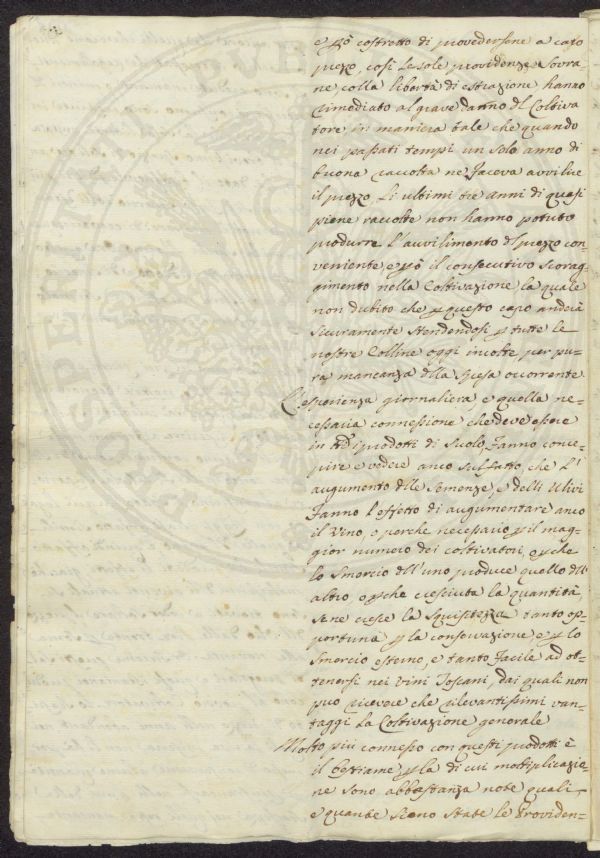 e p̄ò costretto di provedersene a caro
prezzo, così le sole providenze Sovra=
ne colla libertà di estrazione hanno
rimediato al grave danno dl Coltiva
tore in maniera tale che quando
nei passati tempi un solo anno di
buona raccolta ne faceva avvilire
il prezzo, li ultimi tre anni di quasi
piene raccolte non hanno potuto
produrre l'avvilimento dl prezzo con=
veniente e p̄ò il consecutivo scorag=
gimento nella Coltivazione la quale
non dubito che p̄ questo capo anderà
sicuramente stendendosi p̄ tutte le
nostre Colline oggi incolte, per pu=
ra mancanza dlla spesa occorrente
L'esperienza giornaliera, e quella ne=
cessaria connessione che deve essere
in tti i prodotti di Suolo, fanno conce=
pire e vedere anco sul fatto, che l'
augumento dlle Semenze, e delli Ulivi
fanno l'effetto di augumentare anco
il Vino, o perche necessario p̄ il mag=
gior numero dei coltivatori, o p̄che
lo smercio dll'uno produce quello dll'
altro o p̄che cresciuta la quantità,
sene cresce la Squisitezza tanto op=
portuna p̄ la conservazione, e p̄ lo
smercio esterno, e tanto facile ad ot=
tenersi nei vini Toscani, dai quali non
può ricevere che rilevantissimi van=
taggi la Coltivazione generale
Molto più connesso con questi prodotti è
il bestiame p̄ la di cui moltiplicazio=
ne sono abbastanza note quali
e quante siano state le Providen=
PROSPERITATI PUB